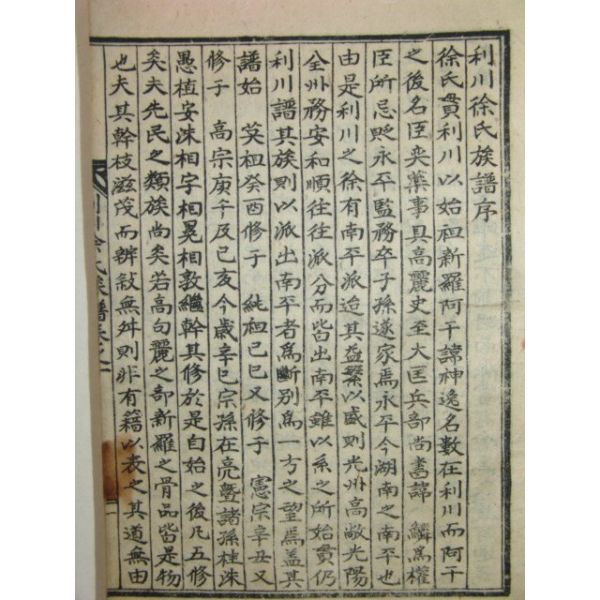 利川徐氏族譜序
徐氏貫利川以始祖新羅阿干諱神逸名數在利川而阿干
之後名臣奕葉事具高麗史至大匡兵部尚書諱 鱗爲權
臣所忌貶永平監務卒子孫遂家焉永平今湖南之南平也
由是利川之徐有南平派迨其益繁以盛則光州高敞光陽
全州務安和順往往派分而皆出南平雖以系之所始貫仍
利川譜其族則以派出南平者爲斷別爲一方之望焉盖其
譜始 英祖癸酉修于 純祖己巳又修于 憲宗辛丑又
修于 高宗庚午及己亥今歲辛巳宗孫在亮曁諸孫桂洙
愚植安洙相字相冕相敦繼幹其修於是自始之後凡五修
矣夫先民之類族尚矣若高句麗之部新羅之骨品皆是物
也夫其幹枝滋茂而辨敍無舛則非有籍以表之其道無由
利川徐氏族譜卷之一